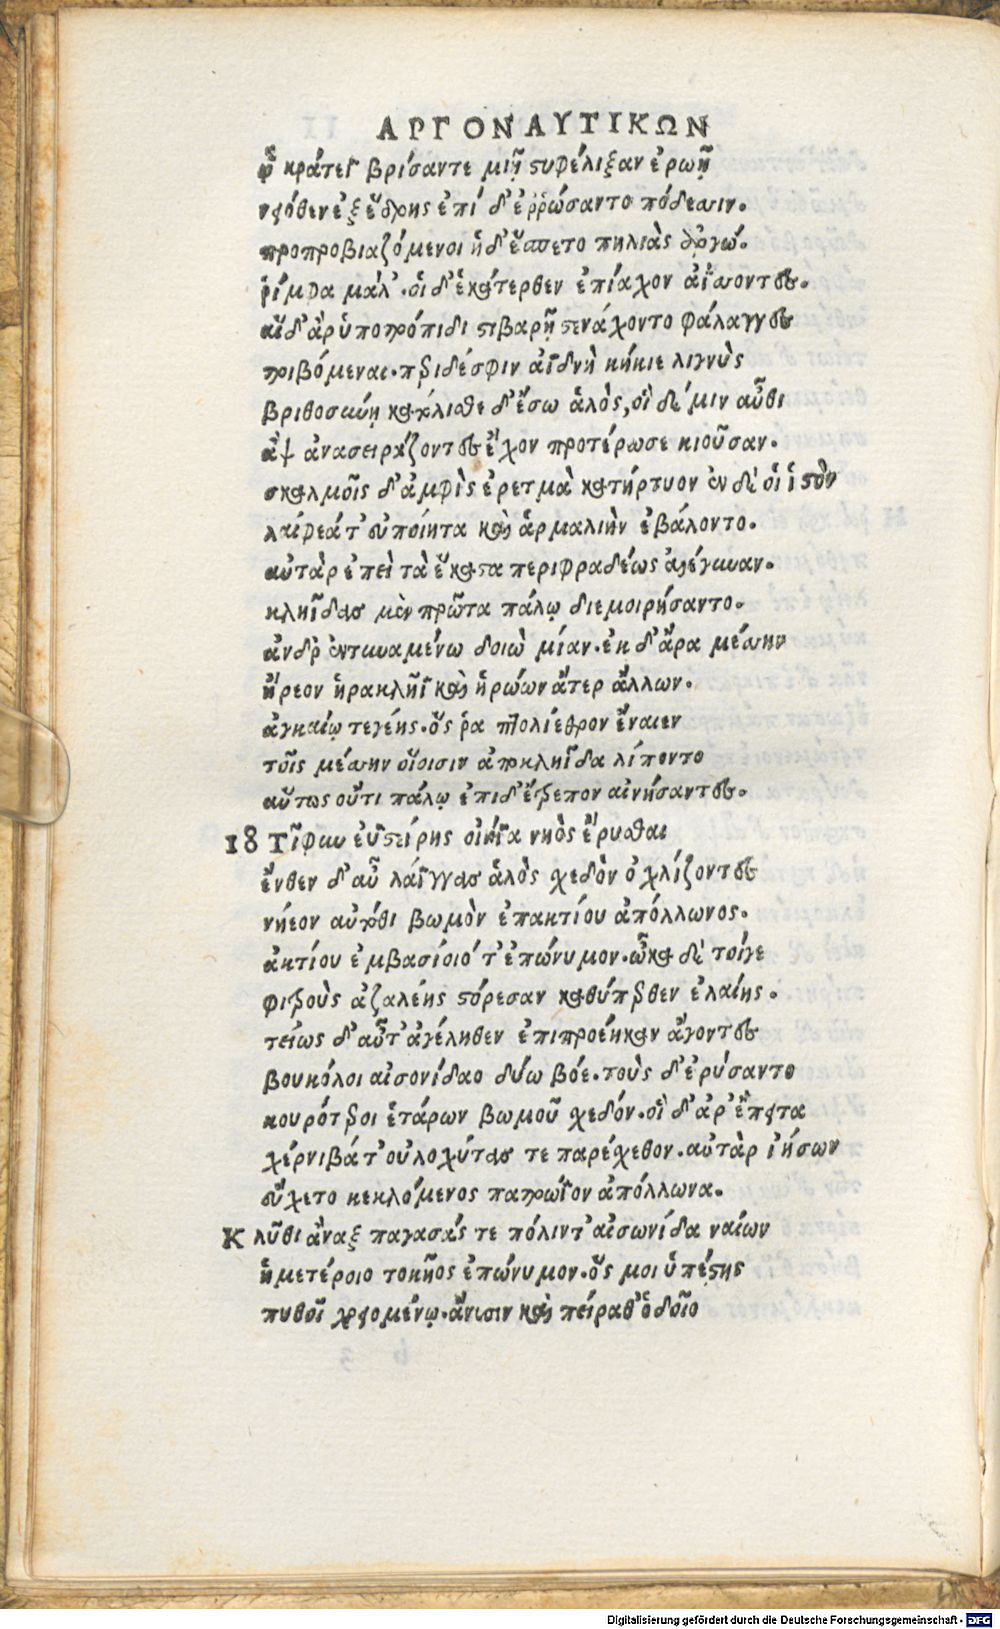 ΑΡΓΟΝΑΥΤΙΚΩΝ
ᾧ κράτεϊ βρίσαντε μιῇ στυφέλιξαν ἐρωῇ
νειόθεν ἐξ ἕδρης ἐπί δ' ἐῤῥώσαντο πόδεσσιν.
προπροβιαζόμενοι ἡ δ' ἕσπετο πηλιὰς ἀργώ.
ῥίμφα μάλ'. οἱ δ' ἑκάτερθεν ἐπίαχον ἀΐσσοντες.
αἵ δ' ἂρ ὑπὸ τρόπιδι στιβαρῇ στενάχοντο φάλαγγες
τριβόμεναι. περὶ δέ σφιν ἀϊδνὴ κήκιε λιγνὺς
βριθοσύνῃ κατόλισθε δ' ἔσω ἁλὸς, οἳ δέ μιν αὖθι
ἂψ ἀνασειράζοντες ἔχον προτέρωσε κιοῦσαν.
σκαλμοῖς δ' ἀμφὶς ἐρετμὰ κατήρτυον ἐν δέ οἱ ἱστὸν
λαίφεά τ' εὐποίητα καὶ ἁρμαλιὴν ἐβάλοντο.
αὐτὰρ ἐπεὶ τὰ ἕκαστα περιφραδέως ἀλέγυναν.
κληῗδας μὲν πρῶτα πάλῳ διεμοιρήσαντο.
ἄνδρ' ἐντυναμένω δοιὼ μίαν. ἐκ δ' ἄρα μέσσην
ᾕρεον ἡρακλῆϊ καὶ ἡρώων ἄτερ ἄλλων.
ἀγκαίῳ τεγέης. ὅς ῥα πτολίεθρον ἔναιεν
τοῖς μέσσην οἴοισιν ἀπὸ κληῗδα λίποντο
αὔτως οὔτι πάλῳ ἐπὶ δ' ἔτρεπον αἰνήσαντες.
18 Τῖφυν ἐϋστείρης οἰήϊα νηὸς ἔρυσθαι
ἔνθεν δ' αὖ λάϊγγας ἁλὸς σχεδὸν ὀχλίζοντες
νήεον αὐτόθι βωμὸν ἐπακτίου ἀπόλλωνος.
ἀκτίου ἐμβασίοιό τ' ἐπώνυμον. ὦκα δὲ τοίγε
φιτροὺς ἀζαλέης στόρεσαν καθύπερθεν ἐλαίης.
τείως δ' αὖτ' ἀγέληθεν ἐπιπροέηκαν ἄγοντες
βουκόλοι αἰσονίδαο δύω βόε. τοὺς δ' ἐρύσαντο
κουρότεροι ἑτάρων βωμοῦ σχεδόν. οἳ δ' ἀρ' ἔπειτα
χέρνιβά τ' οὐλοχύτας τε παρέσχεθον. αὐτὰρ ἰήσων
εὔχετο κεκλόμενος πατρώϊον ἀπόλλωνα.
Κ λῦθι ἄναξ παγασάς τε πόλιν τ' αἰσωνίδα ναίων
ἡμετέροιο τοκῆος ἐπώνυμον. ὅς μοι ὑπέστης
πυθοῖ χρειομένῳ. ἄνυσιν καὶ πείραθ' ὁδοῖο
Digitalisierung gefördert durch die Deutsche Forschungsgemeinschaft - DFG